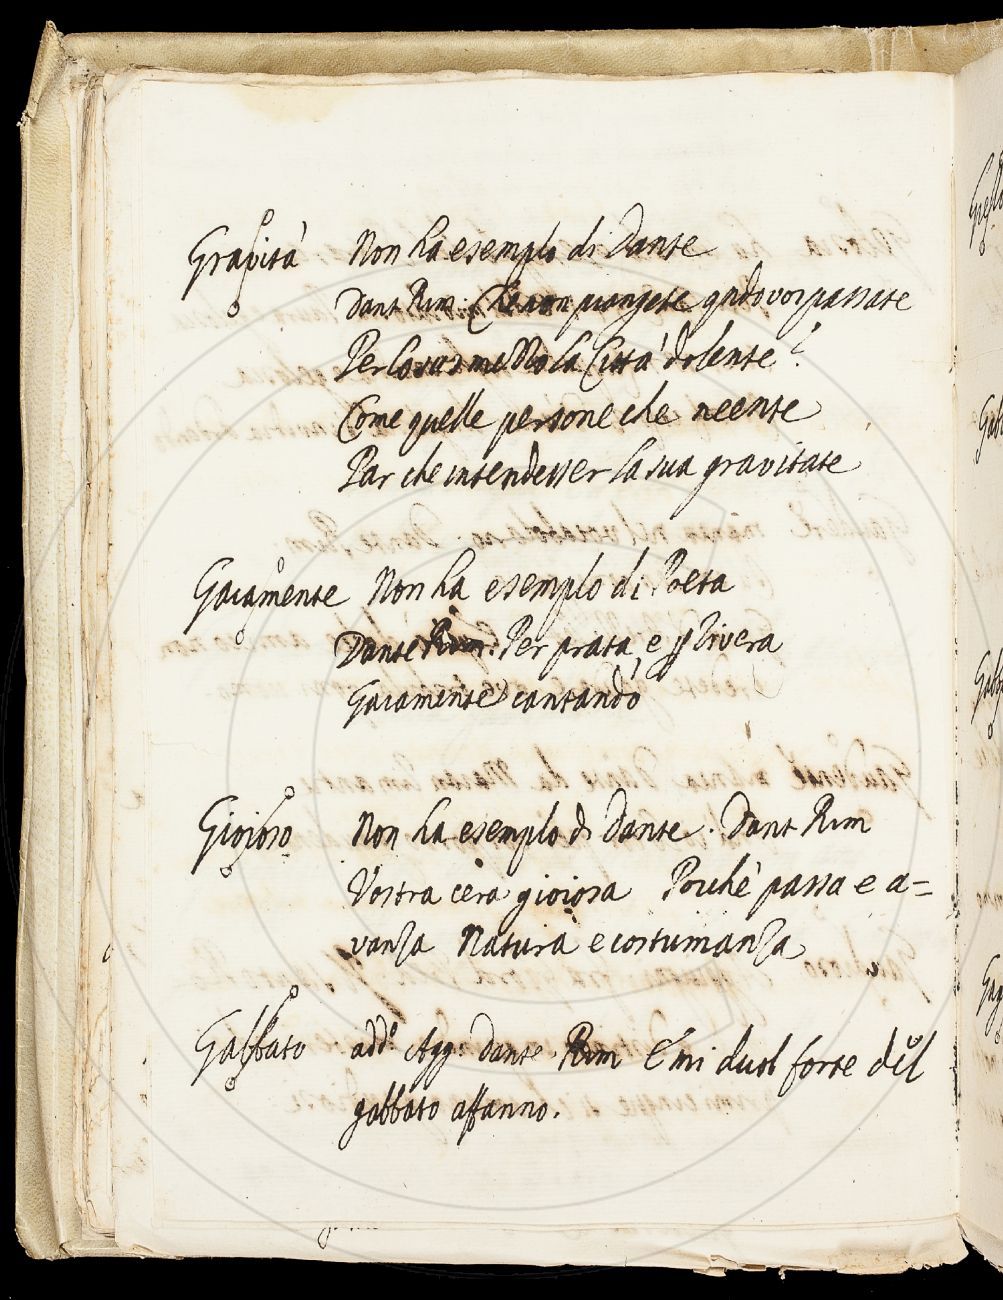 Gravità Non ha esempio di Dante
Dant Rim: Che non piangete qndo voi passate
Per lo suo mezzo la Città dolente?
Come quelle persone che neente
Par che intendesser la sua gravitate
Gaiamente Non ha esempio di Poeta
Dante Rim: Per prata e p Rivera
Gaiamente cantando
Gioioso Non ha esempio di Dante. Dant Rim
Vostra cera gioiosa Poichè passa e a=
vanza Natura e costumanza
Gabbato add: Agg: Dante Rim E mi duol forte del
gabbato affanno.